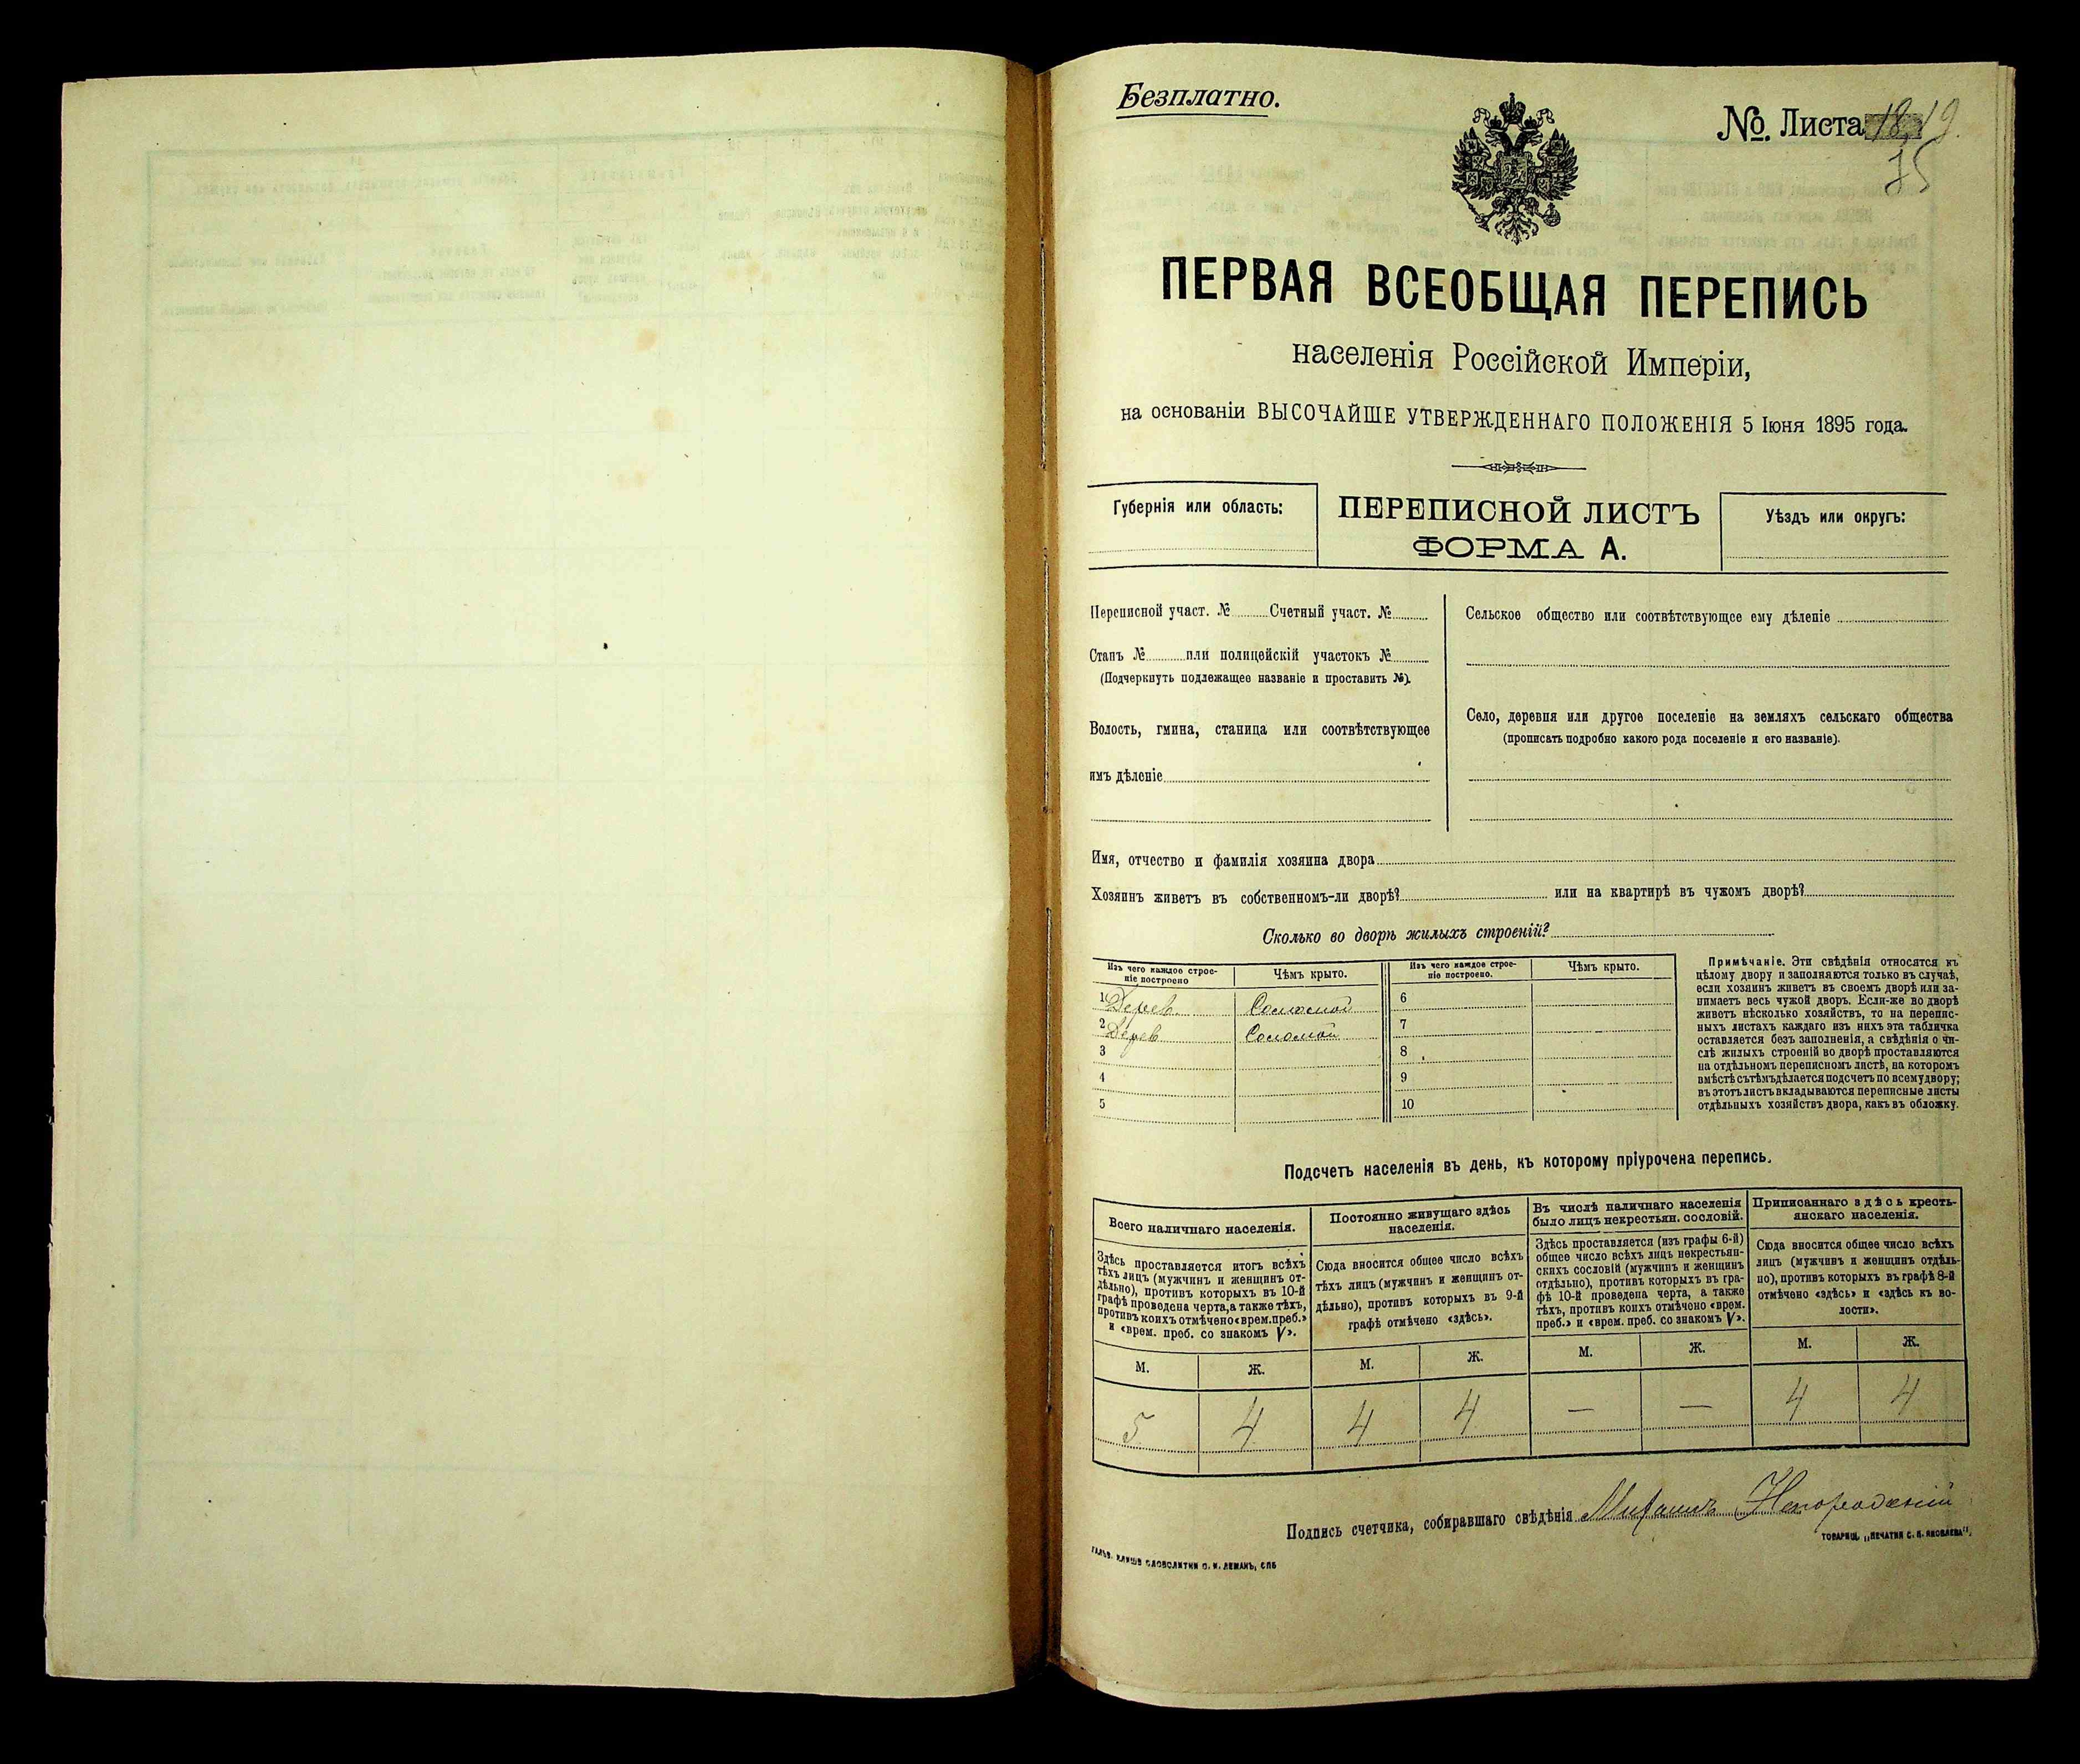 Безплатно.
№ Листа 19.
75
ПЕРВАЯ ВСЕОБЩАЯ ПЕРЕПИСЬ
населенія Россійской Имперіи,
на основаніи ВЫСОЧАЙШЕ УТВЕРЖДЕННАГО ПОЛОЖЕНІЯ 5 Іюня 1895 года.
Губернія или область:
ПЕРЕПИСНОЙ ЛИСТЪ
ФОРМА А.
Уѣздъ или округъ:
Переписной участ. № Счетный участ. №
Станъ № или полицейскій участокъ №
(Подчеркнуть подлежащее названіе и проставить №).
Волость, гмина, станица или соотвѣтствующее
имъ дѣленіе
Сельское общество или соотвѣтствующее ему дѣленіе
Село, деревня или другое поселеніе на земляхъ сельскаго общества
(прописать подробно какого рода поселеніе и его названіе).
Имя, отчество и фамилія хозяина двора
Хозяинъ живетъ въ собственномъ-ли дворѣ? или на квартирѣ въ чужомъ дворѣ?
Сколько во дворѣ жилыхъ строеній?
Изъ чего каждое строе-
ніе построено
Чѣмъ крыто.
Изъ чего каждое строе-
ніе построено.
Чѣмъ крыто.
1 Дерев. Соломой 6
2 Дерев Соломой 7
3 8
4 9
5 10
Примѣчаніе. Эти свѣдѣнія относятся къ
цѣлому двору и заполняются только въ случаѣ,
если хозяинъ живетъ въ своемъ дворѣ или за-
нимаетъ весь чужой дворъ. Если-же во дворѣ
живетъ нѣсколько хозяйствъ, то на перепис-
ныхъ листахъ каждаго изъ нихъ эта табличка
оставляется безъ заполненія, а свѣдѣнія о чи-
слѣ жилыхъ строеній во дворѣ проставляются
на отдѣльномъ переписномъ листѣ, на которомъ
вмѣстѣ съ тѣмъ дѣлается подсчетъ по всему двору;
въ этотъ листъ вкладываются переписные листы
отдѣльныхъ хозяйствъ двора, какъ въ обложку.
Подсчетъ населенія въ день, къ которому пріурочена перепись.
Всего наличнаго населенія.
Здѣсь проставляется итогъ всѣхъ
тѣхъ лицъ (мужчинъ и женщинъ от-
дѣльно), противъ которыхъ въ 10-й
графѣ проведена черта, а также тѣхъ,
противъ коихъ отмѣчено «врем. преб.»
и «врем. преб. со знакомъ V».
Постоянно живущаго здѣсь
населенія.
Сюда вносится общее число всѣхъ
тѣхъ лицъ (мужчинъ и женщинъ от-
дѣльно), противъ которыхъ въ 9-й
графѣ отмѣчено «здѣсь».
Въ числѣ наличнаго населенія
было лицъ некрестьян. сословій.
Здѣсь проставляется (изъ графы 6-й)
общее число всѣхъ лицъ некрестьян-
скихъ сословій (мужчинъ и женщинъ
отдѣльно), противъ которыхъ въ гра-
фѣ 10-й проведена черта, а также
тѣхъ, противъ коихъ отмѣчено «врем.
преб.» и «врем. преб. со знакомъ V».
Приписаннаго здѣсь кресть-
янскаго населенія.
Сюда вносится общее число всѣхъ
лицъ (мужчинъ и женщинъ отдѣль-
но), противъ которыхъ въ графѣ 8-й
отмѣчено «здѣсь» и «здѣсь въ во-
лости».
М. Ж. М. Ж. М. Ж. М. Ж.
5 4 4 4 — — 4 4
Подпись счетчика, собиравшаго свѣдѣнія
ТОВАРИЩ. „ПЕЧАТНЯ С. П. ЯКОВЛЕВА".
ГАЛЬВ. КЛИШЕ СЛОВОЛИТНИ О. И. ЛЕМАНЪ, СПБ